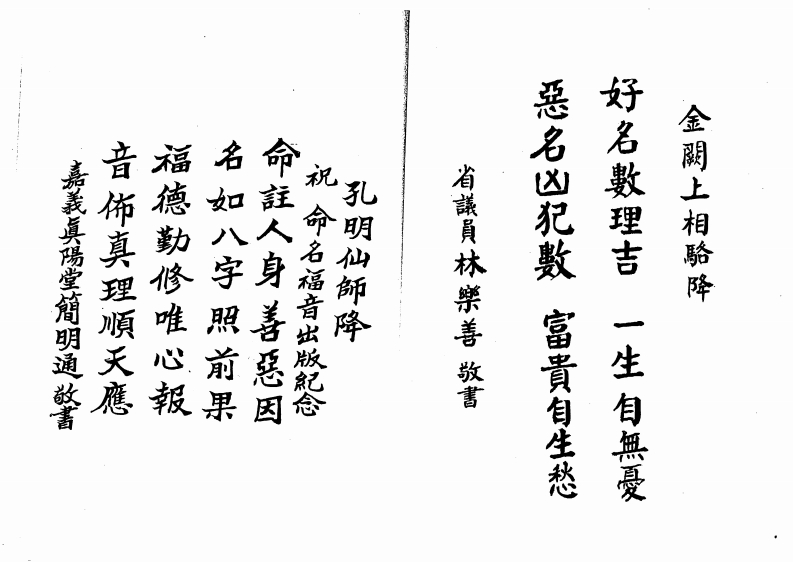 金闕上相駱降
好名數理吉　一生自無憂
惡名凶犯數　富貴自生愁
省議員林樂善　敬書
孔明仙師降
祝　命名福音出版紀念
命註人身善惡因
名如八字照前果
福德勤修唯心報
音佈真理順天應
嘉義眞陽堂簡明通敬書